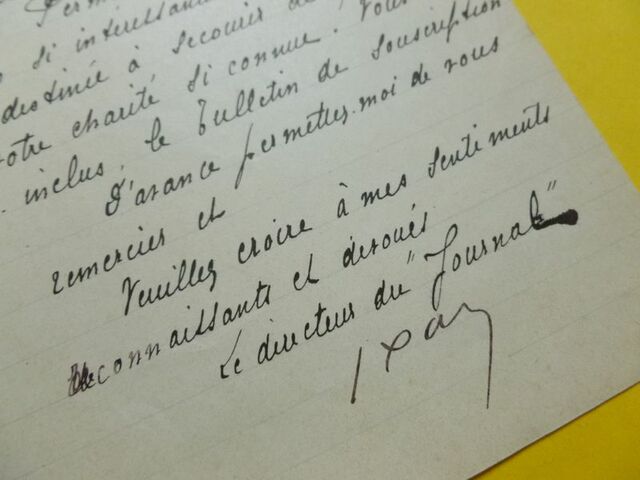 Perm
si intéressant
destinée à secourir de
otre charité si connue. Vous
inclus, le bulletin de souscription
D'avance permettez-moi de vous
remercier et
Veuillez croire à mes sentiments
reconnaissants et dévoués
Le directeur du "Journal"